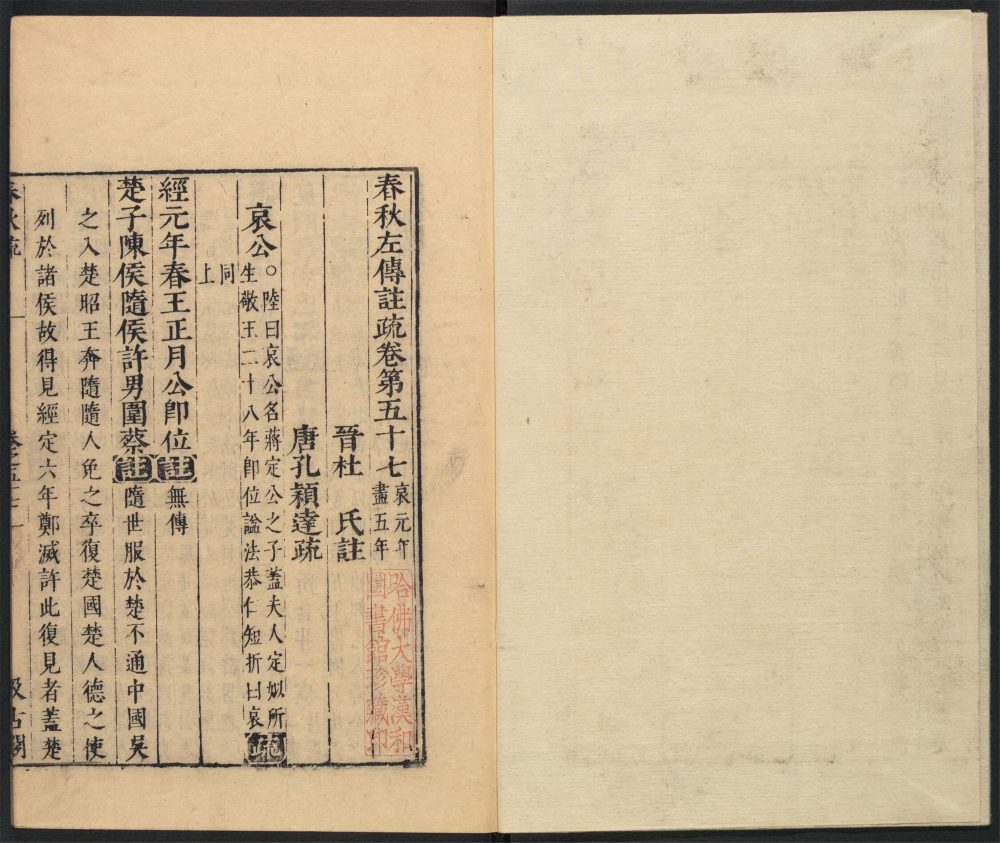 春秋左傳註疏卷第五十七哀元年
盡五年
晉杜 氏註
唐孔穎達疏
哀公○陸曰哀公名蔣定公之子蓋夫人定姒所
生敬王二十八年卽位諡法恭仁短折曰哀疏
同
上
經元年春王正月公卽位註無傳
楚子陳侯隨侯許男圍蔡註隨世服於楚不通中國吳
之入楚昭王奔隨隨人免之卒復楚國楚人德之使
列於諸侯故得見經定六年鄭滅許此復見者蓋楚
春秋疏
卷之五十七
一
汲古閣
哈佛大學漢和
圖書館珍藏印